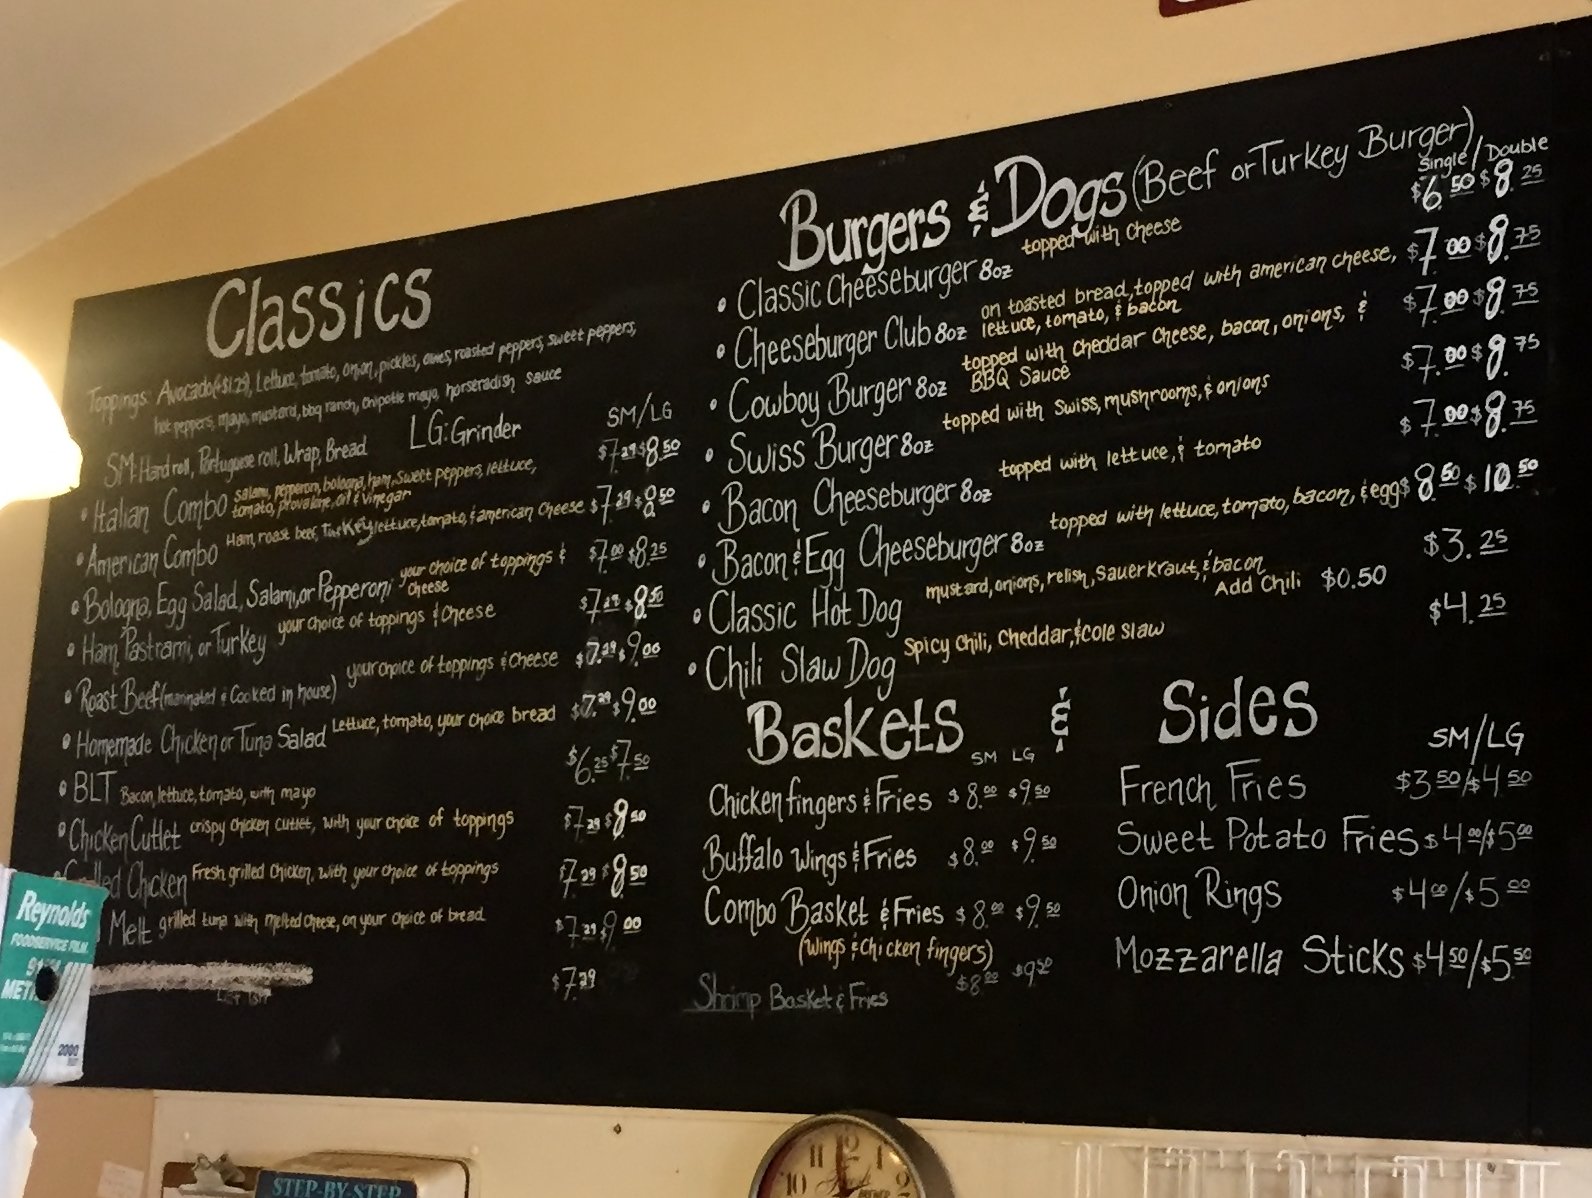 Classics
Toppings: Avocado(+$1.29), Lettuce, tomato, onion, pickles, olives, roasted peppers, sweet peppers,
hot peppers, mayo, mustard, bbq ranch, chipotle mayo, horseradish sauce
SM: Hard roll, Portuguese roll, Wrap, Bread LG: Grinder SM/LG
• Italian Combo salami, pepperoni, bologna, ham, Sweet peppers, lettuce, $7.29 $8.50
tomato, provolone, oil & vinegar
• American Combo Ham, roast beef, Turkey, lettuce, tomato, & american cheese $7.29 $8.50
• Bologna, Egg Salad, Salami, or Pepperoni your choice of toppings & $7.00 $8.25
cheese
• Ham, Pastrami, or Turkey your choice of toppings & cheese $7.29 $8.50
• Roast Beef (marinated & cooked in house) your choice of toppings & cheese $7.29 $9.00
• Homemade Chicken or Tuna Salad Lettuce, tomato, your choice bread $7.29 $9.00
• BLT Bacon, lettuce, tomato, with mayo $6.25 $7.50
• Chicken Cutlet crispy chicken cutlet, with your choice of toppings $7.29 $8.50
Chicken Fresh grilled chicken, with your choice of toppings $7.29 $8.50
Melt grilled tuna with melted cheese, on your choice of bread $7.29 $9.00
$7.29
Burgers & Dogs (Beef or Turkey Burger)
Single/Double
• Classic Cheeseburger 8oz topped with cheese $6.50 $8.25
• Cheeseburger Club 8oz on toasted bread, topped with american cheese, $7.00 $8.75
lettuce, tomato, & bacon
• Cowboy Burger 8oz topped with cheddar cheese, bacon, onions, & $7.00 $8.75
BBQ Sauce
• Swiss Burger 8oz topped with Swiss, mushrooms, & onions $7.00 $8.75
• Bacon Cheeseburger 8oz topped with lettuce, & tomato $7.00 $8.75
• Bacon & Egg Cheeseburger 8oz topped with lettuce, tomato, bacon, & egg $8.50 $10.50
• Classic Hot Dog mustard, onions, relish, sauerkraut, & bacon $3.25
Add Chili $0.50
• Chili Slaw Dog Spicy chili, cheddar, & cole slaw $4.25
Baskets & Sides
SM LG
Chicken fingers & Fries $8.00 $9.50
Buffalo Wings & Fries $8.00 $9.50
Combo Basket & Fries $8.00 $9.50
(wings & chicken fingers)
Shrimp Basket & Fries $8.00 $9.50
SM/LG
French Fries $3.50/$4.50
Sweet Potato Fries $4.00/$5.00
Onion Rings $4.00/$5.00
Mozzarella Sticks $4.50/$5.50
Reynolds
FOODSERVICE FILM
2000
STEP-BY-STEP
10 11 12 1